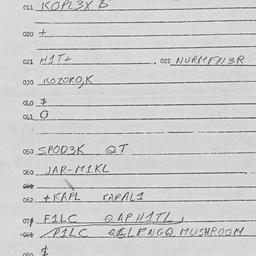 011 KOPL3X B
020 +
021 H1T+. 022 NURMFN3R
030 KOZORO,K
040 ⨎
041 O
050 SPOD3K QT
060 JAR-M1KL
061
062 +KAPL KAPAL1
071 F1LC QAPH1TL,
P1LC QELFNGQ MUSHROOM
080 $